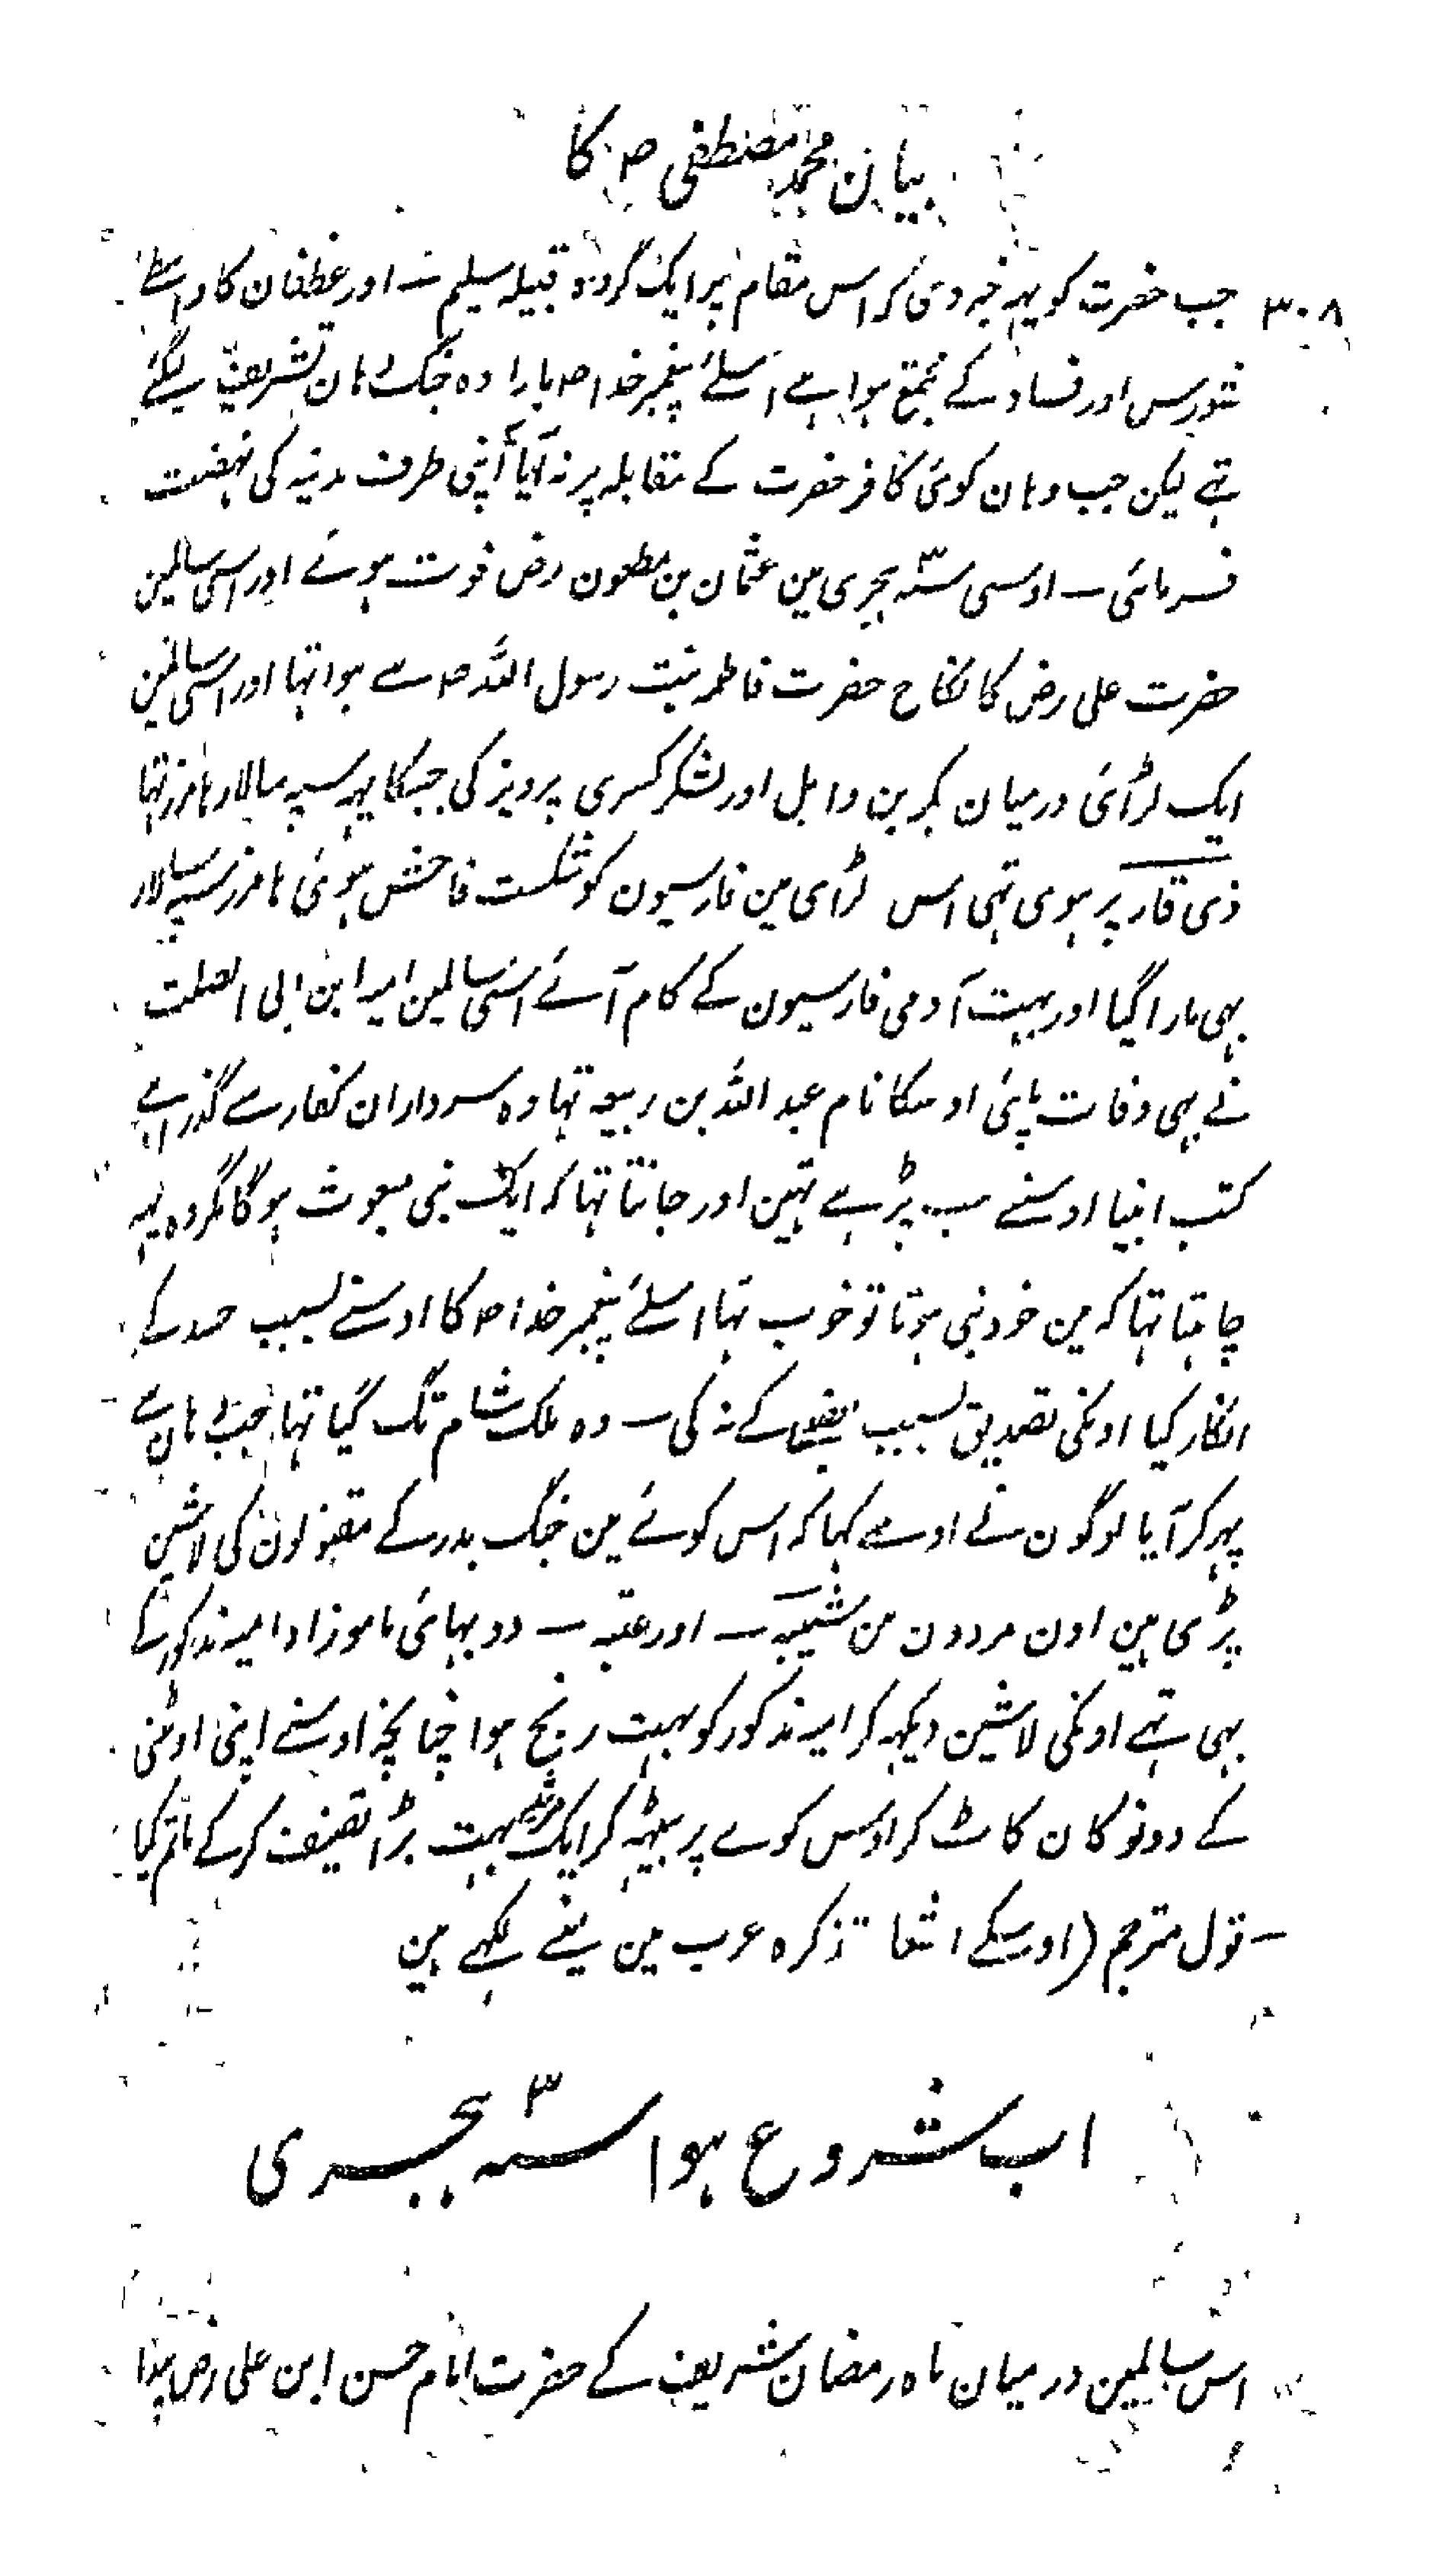 بیان محمد مصطفی ص کا
۳۰۸ جب حضرت کو یہہ خبر دی کہ اس مقام پر ایک گروہ قبیلہ سلیم ــ اور غطفان کا واسطے
شورس اور فساد کے مجتمع ہوا ہے اسلئے پیغمبر خدا ص بارادہ جنگ وہان تشریف لیگئے
تہے لیکن جب وہان کوئی کافر حضرت کے مقابلہ پر نہ آیا اپنی طرف مدینہ کی نہضت
فرمائی ــ اوسی سنہ ہجری مین عثمان بن مطعون رض فوت ہوئے اور اسی سالمین
حضرت علی رض کا نکاح حضرت فاطمہ بنت رسول اللہ ص سے ہوا تہا اور اسی سالمین
ایک لڑائی درمیان بکر بن وایل اور لشکر کسری پرویز کی جسکا یہہ سپہ سالار ہامرز تہا
ذی قار پر ہوی تہی اس لڑای مین فارسیون کو شکست فاحش ہوئی ہامرز سپہ سالار
بہی مارا گیا اور بہت آدمی فارسیون کے کام آئے اسی سالمین امیہ ابن ابی الصلت
نے بہی وفات پائی اوسکا نام عبد اللہ بن ربیعہ تہا وہ سرداران کفار سے گذرا ہے
کتب انبیا اوسنے سب پڑہے تہین اور جانتا تہا کہ ایک نبی مبعوث ہوگا مگر وہ یہہ
چاہتا تہا کہ مین خود نبی ہوتا تو خوب تہا اسلئے پیغمبر خدا ص کا اوسنے بسبب حسد کے
انکار کیا اونکی تصدیق بسبب بغض کے نہ کی ــ وہ ملک شام تک گیا تہا جب وہان سے
پہر کر آیا لوگون نے اوسے کہا کہ اس کوئے مین جنگ بدر کے مقتولون کی لاشین
پڑی ہین اون مردون من شیبہ ــ اور عتبہ ــ دو بہائی ماموزاد امیہ مذکور کے
بہی تہے اونکی لاشین دیکہہ کر امیہ مذکور کو بہت رنج ہوا چنانچہ اوسنے اپنی اوٹنی
کے دونو کان کاٹ کر اوس کوے پر بیٹہہ کر ایک مرثیہ بہت بڑا تصنیف کرکے ماتم کیا
ــ قول مترجم (اوسکے اشعا تذکرہ عرب مین مینے لکہے ہین
اب شروع ہوا سنہ ۳ ہجری
اس سالمین درمیان ماہ رمضان شریف کے حضرت امام حسن ابن علی رض پیدا